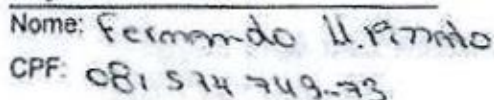 Nome: Fernando U. Pinnto
CPF: 081 574 749-73